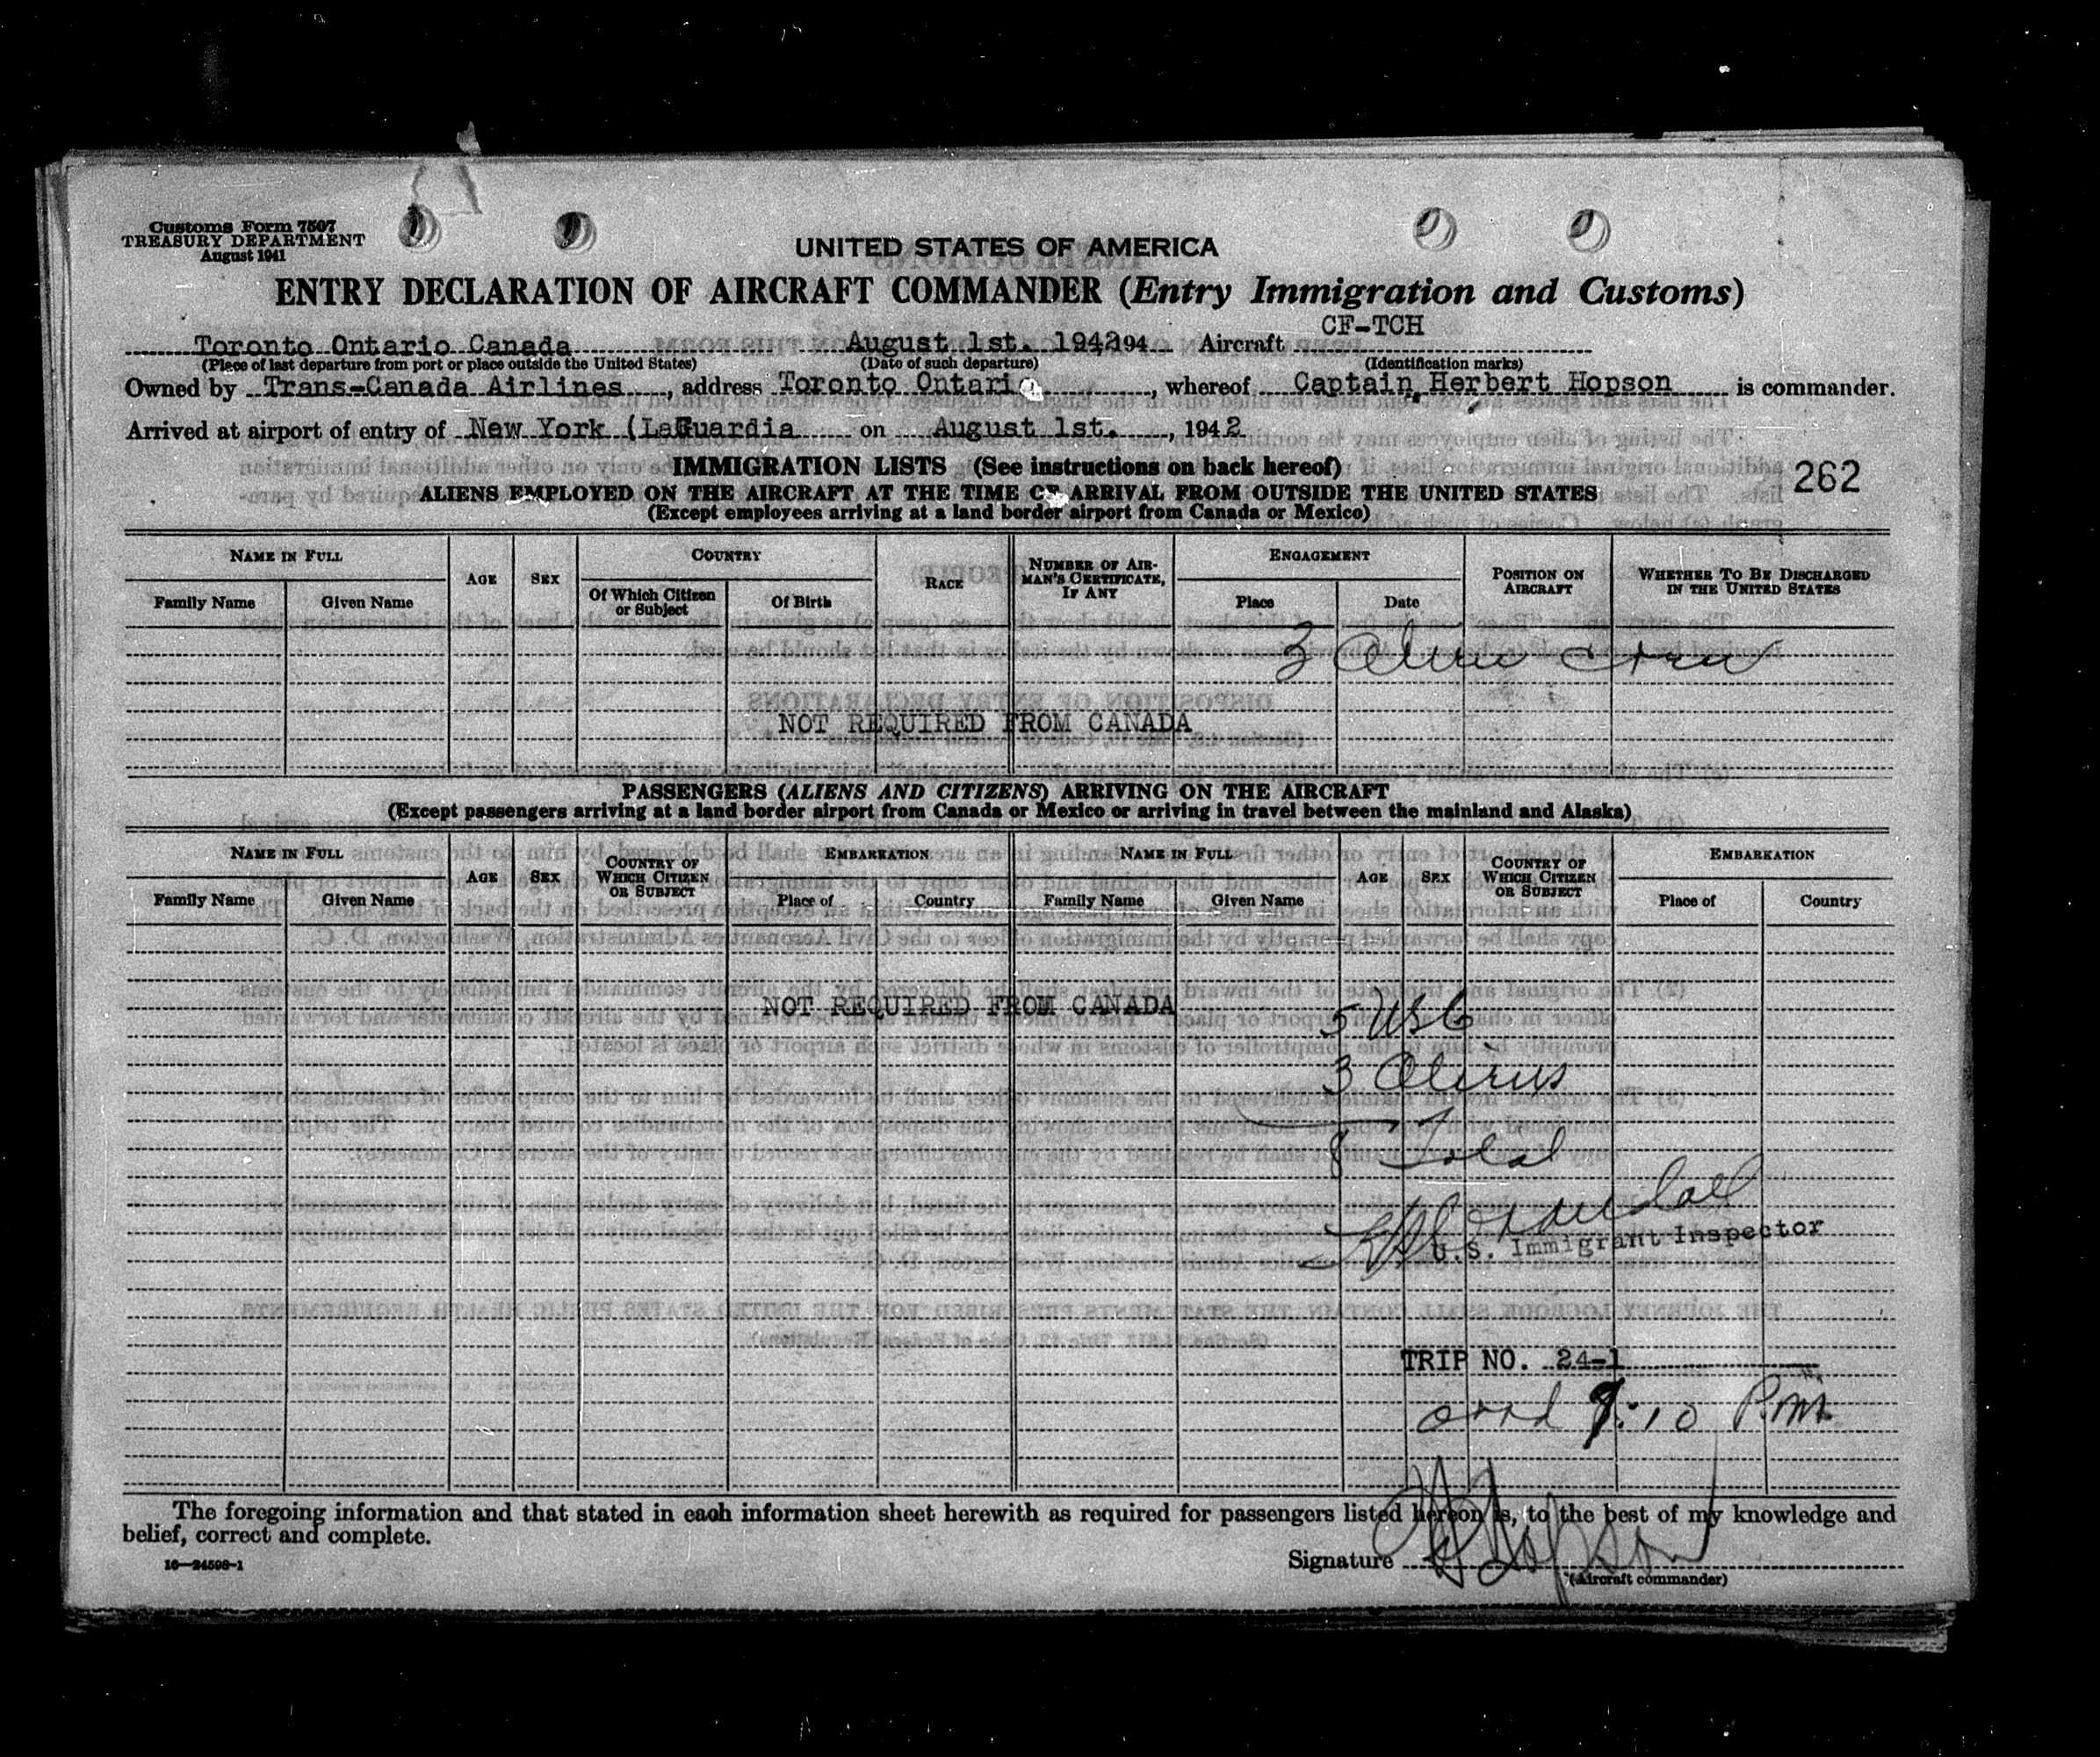 Customs Form 7507
TREASURY DEPARTMENT
August 1941
UNITED STATES OF AMERICA
ENTRY DECLARATION OF AIRCRAFT COMMANDER (Entry Immigration and Customs)
Toronto Ontario Canada August 1st. 1942 194 Aircraft CF-TCH
(Place of last departure from port or place outside the United States) (Date of such departure) (Identification marks)
Owned by Trans-Canada Airlines, address Toronto Ontario, whereof Captain Herbert Hopson is commander.
Arrived at airport of entry of New York (LaGuardia on August 1st., 1942
IMMIGRATION LISTS (See instructions on back hereof)
262
ALIENS EMPLOYED ON THE AIRCRAFT AT THE TIME OF ARRIVAL FROM OUTSIDE THE UNITED STATES
(Except employees arriving at a land border airport from Canada or Mexico)
NAME IN FULL AGE SEX COUNTRY RACE NUMBER OF AIRMAN'S CERTIFICATE, IF ANY ENGAGEMENT POSITION ON AIRCRAFT WHETHER TO BE DISCHARGED IN THE UNITED STATES
Family Name Given Name Of Which Citizen or Subject Of Birth Place Date
3 Alien Crew
NOT REQUIRED FROM CANADA
PASSENGERS (ALIENS AND CITIZENS) ARRIVING ON THE AIRCRAFT
(Except passengers arriving at a land border airport from Canada or Mexico or arriving in travel between the mainland and Alaska)
NAME IN FULL AGE SEX COUNTRY OF WHICH CITIZEN OR SUBJECT EMBARKATION NAME IN FULL AGE SEX COUNTRY OF WHICH CITIZEN OR SUBJECT EMBARKATION
Family Name Given Name Place of Country Family Name Given Name Place of Country
NOT REQUIRED FROM CANADA
5 USC
3 Aliens
8 Total
U.S. Immigrant Inspector
TRIP NO. 24-1
9:10 P.M.
The foregoing information and that stated in each information sheet herewith as required for passengers listed hereon is, to the best of my knowledge and
belief, correct and complete.
16—24598-1
Signature H Hopson
(Aircraft commander)